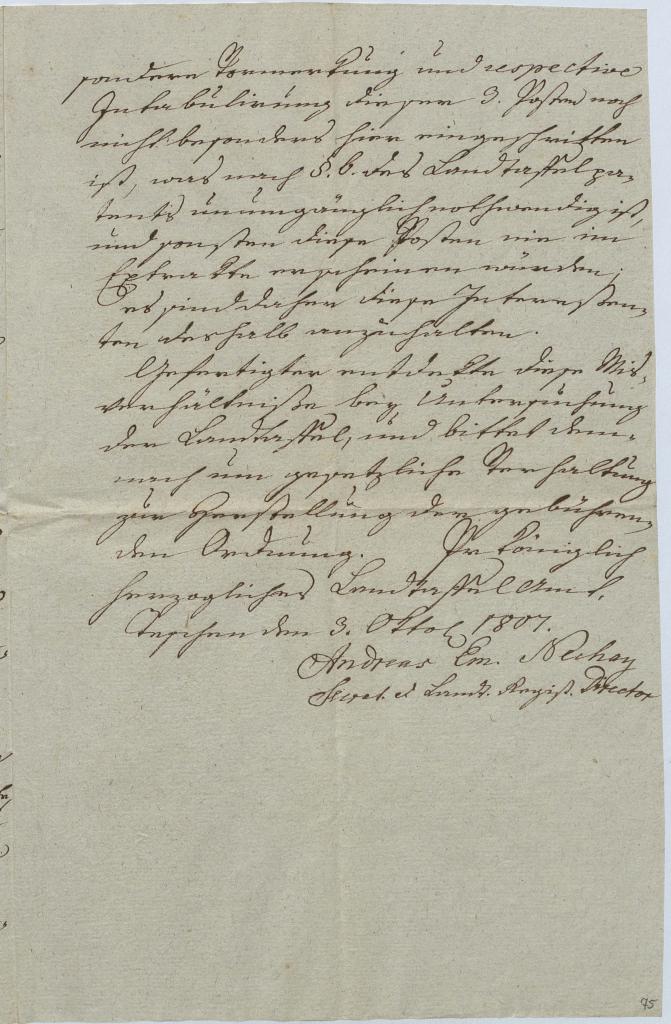 sondere Vormerkung und respective
Intabulirung dieser 3. Posten noch
nicht besonders hier eingeschritten
ist, was nach §. 6. des Landtaffelpa-
tents unumgänglich nothwendig ist,
und sonsten diese Posten nie im
Extrakte erscheinen würden;
es sind daher diese Interessen-
ten deshalb anzuhalten.
Gefertigter entdekte diese Mis-
verhältniße bey Untersuchung
der Landtaffel, und bittet dem-
nach um gesetzliche Verhaltung
zur Herstellung der gebühren-
den Ordnung. Pr königlich
herzogliches Landtaffel Amt.
Teschen den 3. Oktob 1807.
Andreas Em. Nechay
Secret. et Landt. Regist. Director
75